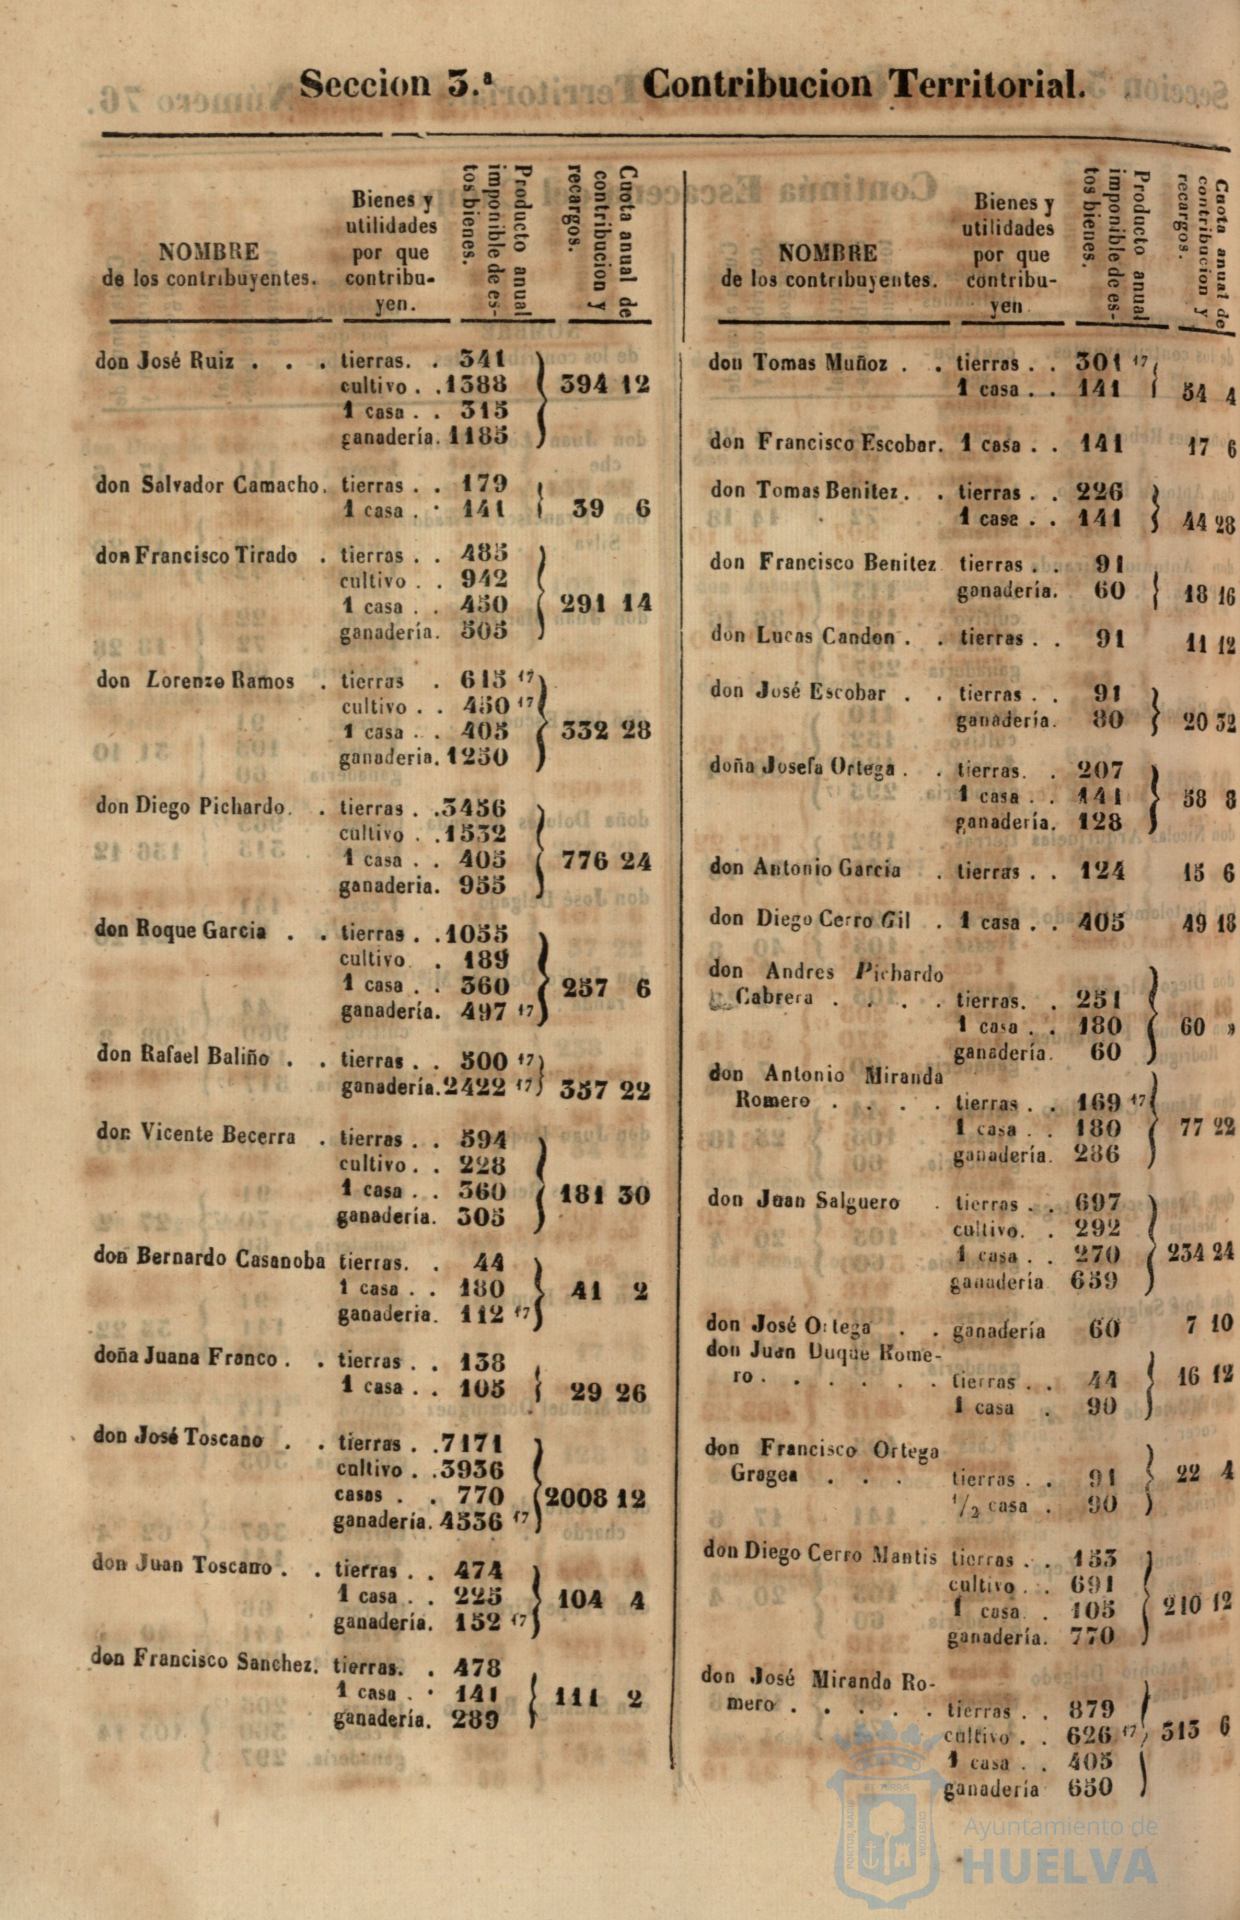 Seccion 3.ª Contribucion Territorial.
NOMBRE
de los contribuyentes.
Bienes y
utilidades
por que
contribu-
yen.
Producto anual
imponible de es-
tos bienes.
Cuota anual de
contribucion y
recargos.
don José Ruiz . . . tierras. . 341
cultivo . . 1388 394 12
1 casa . . 315
ganadería. 1185
don Salvador Camacho. tierras . . 179
1 casa . . 141 39 6
don Francisco Tirado . tierras . . 485
cultivo . . 942
1 casa . . 450 291 14
ganadería. 505
don Lorenzo Ramos . tierras . 615 17
cultivo . . 450 17
1 casa . . 405 332 28
ganaderia. 1250
don Diego Pichardo. . tierras . . 3456
cultivo . . 1532
1 casa . . 405 776 24
ganaderia. 955
don Roque Garcia . . tierras . . 1055
cultivo . 189
1 casa . . 360 257 6
ganadería. 497 17
don Rafael Baliño . . tierras . . 500 17
ganadería. 2422 17 357 22
don Vicente Becerra . tierras . . 594
cultivo . . 228
1 casa . . 360 181 30
ganadería. 305
don Bernardo Casanoba tierras. . 44
1 casa . . 180 41 2
ganaderia. 112 17
doña Juana Franco . . tierras . . 138
1 casa . . 105 29 26
don José Toscano . . tierras . . 7171
cultivo . . 3936
casas . . 770 2008 12
ganadería. 4336 17
don Juan Toscano . . tierras . . 474
1 casa . . 225 104 4
ganadería. 152 17
don Francisco Sanchez. tierras. . 478
1 casa . . 141 111 2
ganadería. 289
NOMBRE
de los contribuyentes.
Bienes y
utilidades
por que
contribu-
yen
Producto anual
imponible de es-
tos bienes.
Cuota anual de
contribucion y
recargos.
don Tomas Muñoz . . tierras . . 301 17
1 casa . . 141 54 4
don Francisco Escobar. 1 casa . . 141 17 6
don Tomas Benitez . . tierras . . 226
1 casa . . 141 44 28
don Francisco Benitez tierras . . 91
ganadería. 60 18 16
don Lucas Candon . . tierras . . 91 11 12
don José Escobar . . tierras . . 91
ganadería. 80 20 32
doña Josefa Ortega . . tierras. . 207
1 casa . . 141 58 8
ganadería. 128
don Antonio Garcia . tierras . . 124 15 6
don Diego Cerro Gil . 1 casa . . 405 49 18
don Andres Pichardo
Cabrera . . . . tierras. . 251
1 casa . . 180 60 »
ganadería. 60
don Antonio Miranda
Romero . . . . tierras . . 169 17
1 casa . . 180 77 22
ganadería. 286
don Juan Salguero . tierras . . 697
cultivo. . 292
1 casa . . 270 234 24
ganadería 659
don José Ortega . . ganadería 60 7 10
don Juan Duque Rome-
ro . . . . . . tierras . . 44 16 12
1 casa . 90
don Francisco Ortega
Gragea . . . tierras . . 91 22 4
1/2 casa . 90
don Diego Cerro Mantis tierras . . 153
cultivo . . 691
1 casa . . 105 210 12
ganadería. 770
don José Miranda Ro-
mero . . . . . tierras . . 879
cultivo . . 626 17 313 6
1 casa . . 405
ganadería 650
Ayuntamiento de
HUELVA